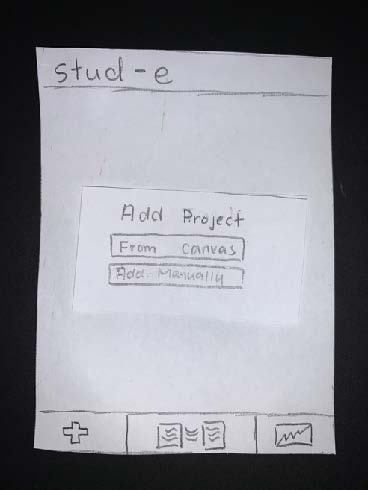 stud-e
Add Project
From canvas
Add Manually